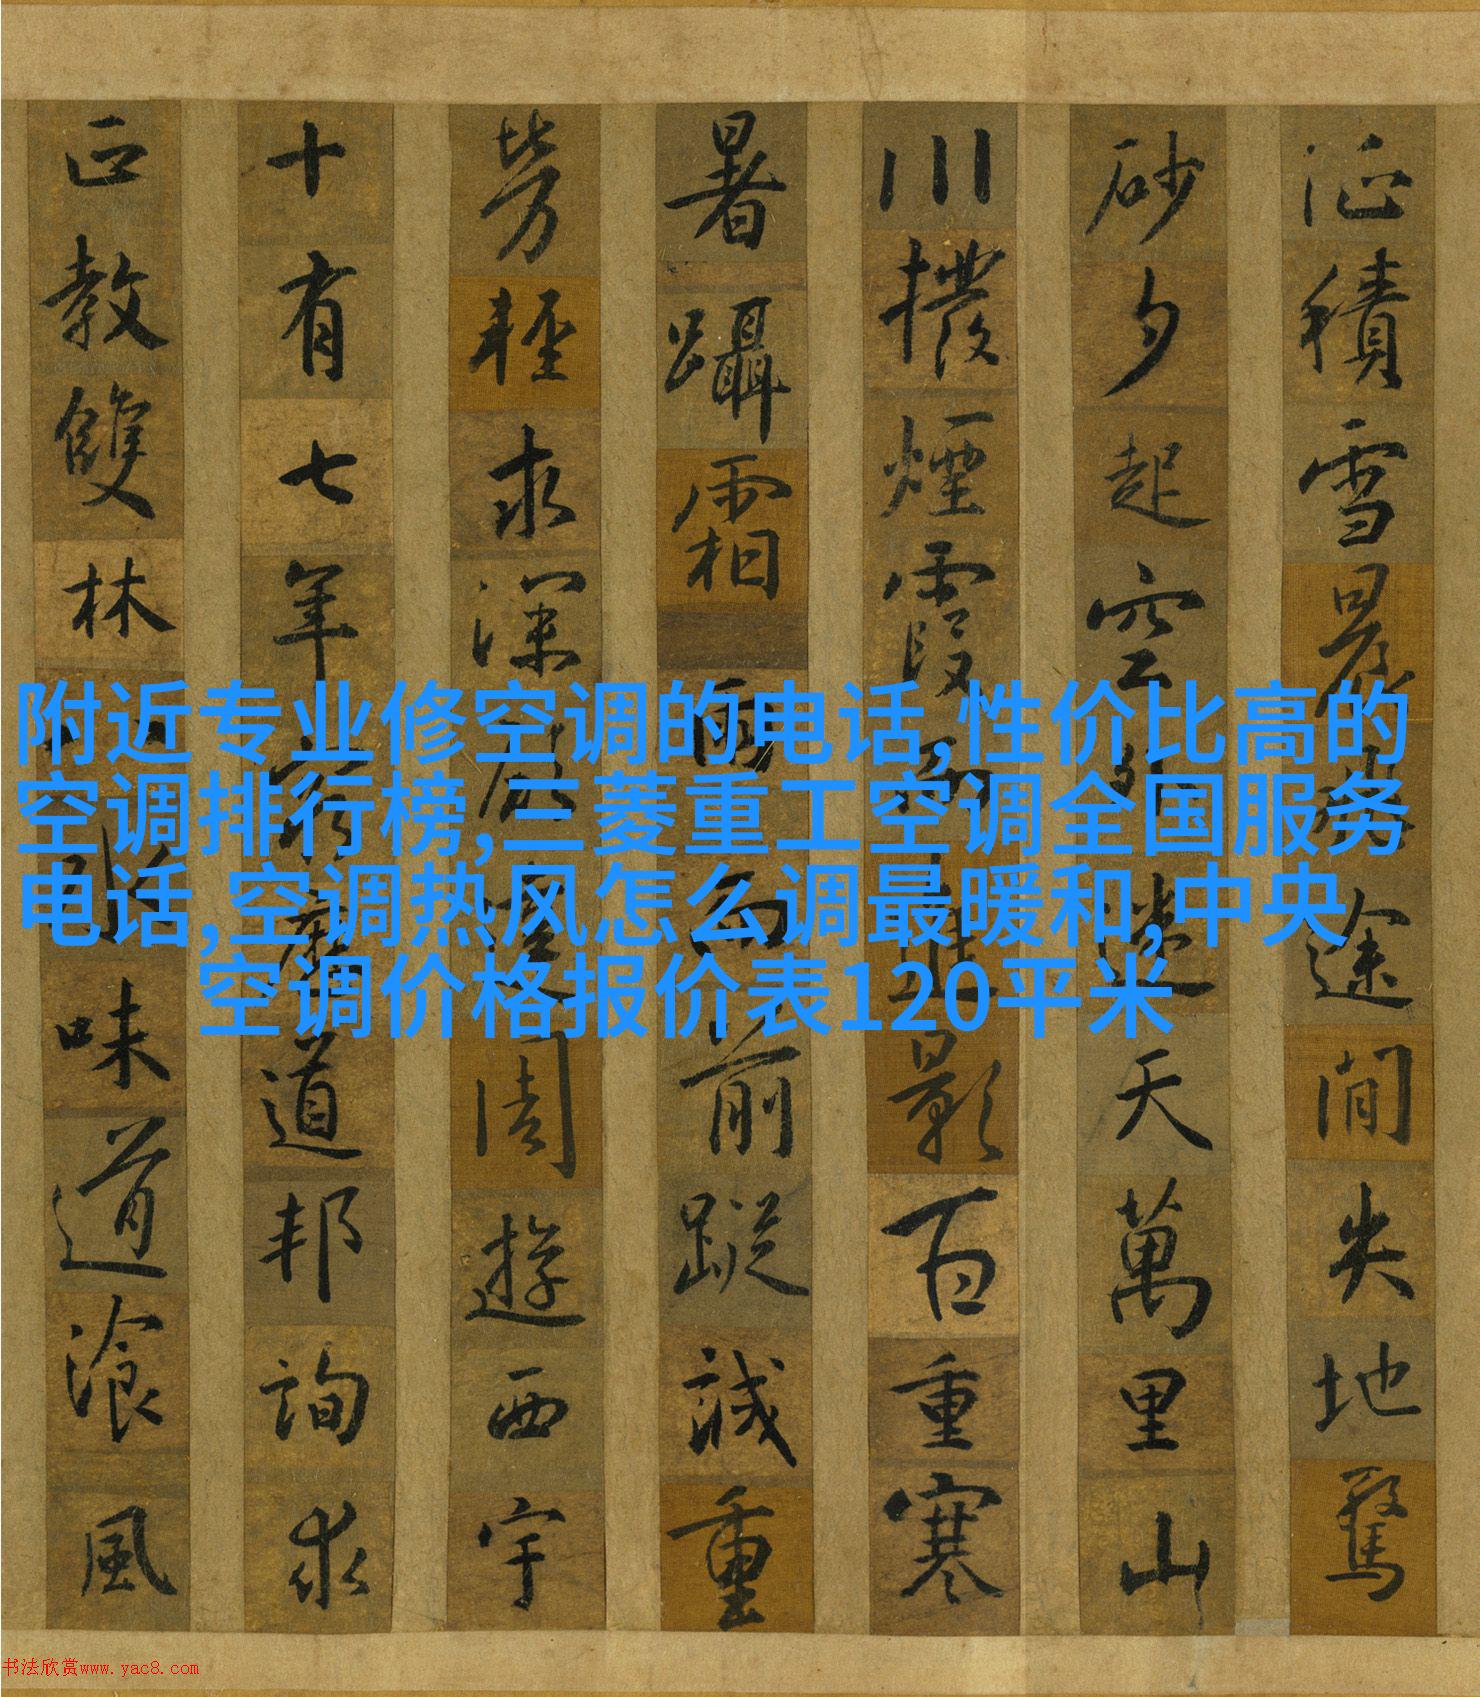 征積雪晨途閒失地驚
砂夕起空迷天萬里山
川撥煙霞影百重寒
暑躡霜雨而前蹤誠重
勞輕求深周遊西宇
十有七年道邦詢求
正教雙林味道湌風
附近专业修空调的电话,性价比高的
空调排行榜,三菱重工空调全国服务
电话,空调热风怎么调最暖和,中央
空调价格报价表120平米
书法欣赏www.yac8.com